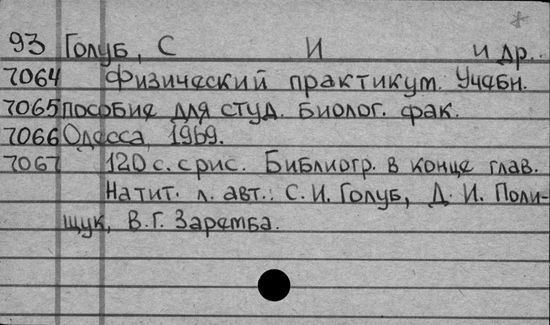 93 Голуб, С И и др.
7064 Физический практикум. Учебн.
7065 пособие для студ. биолог. фак.
7066 Одесса, 1969.
7067 120 с. с рис. Библиогр. в конце глав.
На тит. л. авт.: С. И. Голуб, Д. И. Поли-
щук, В. Г. Заремба.